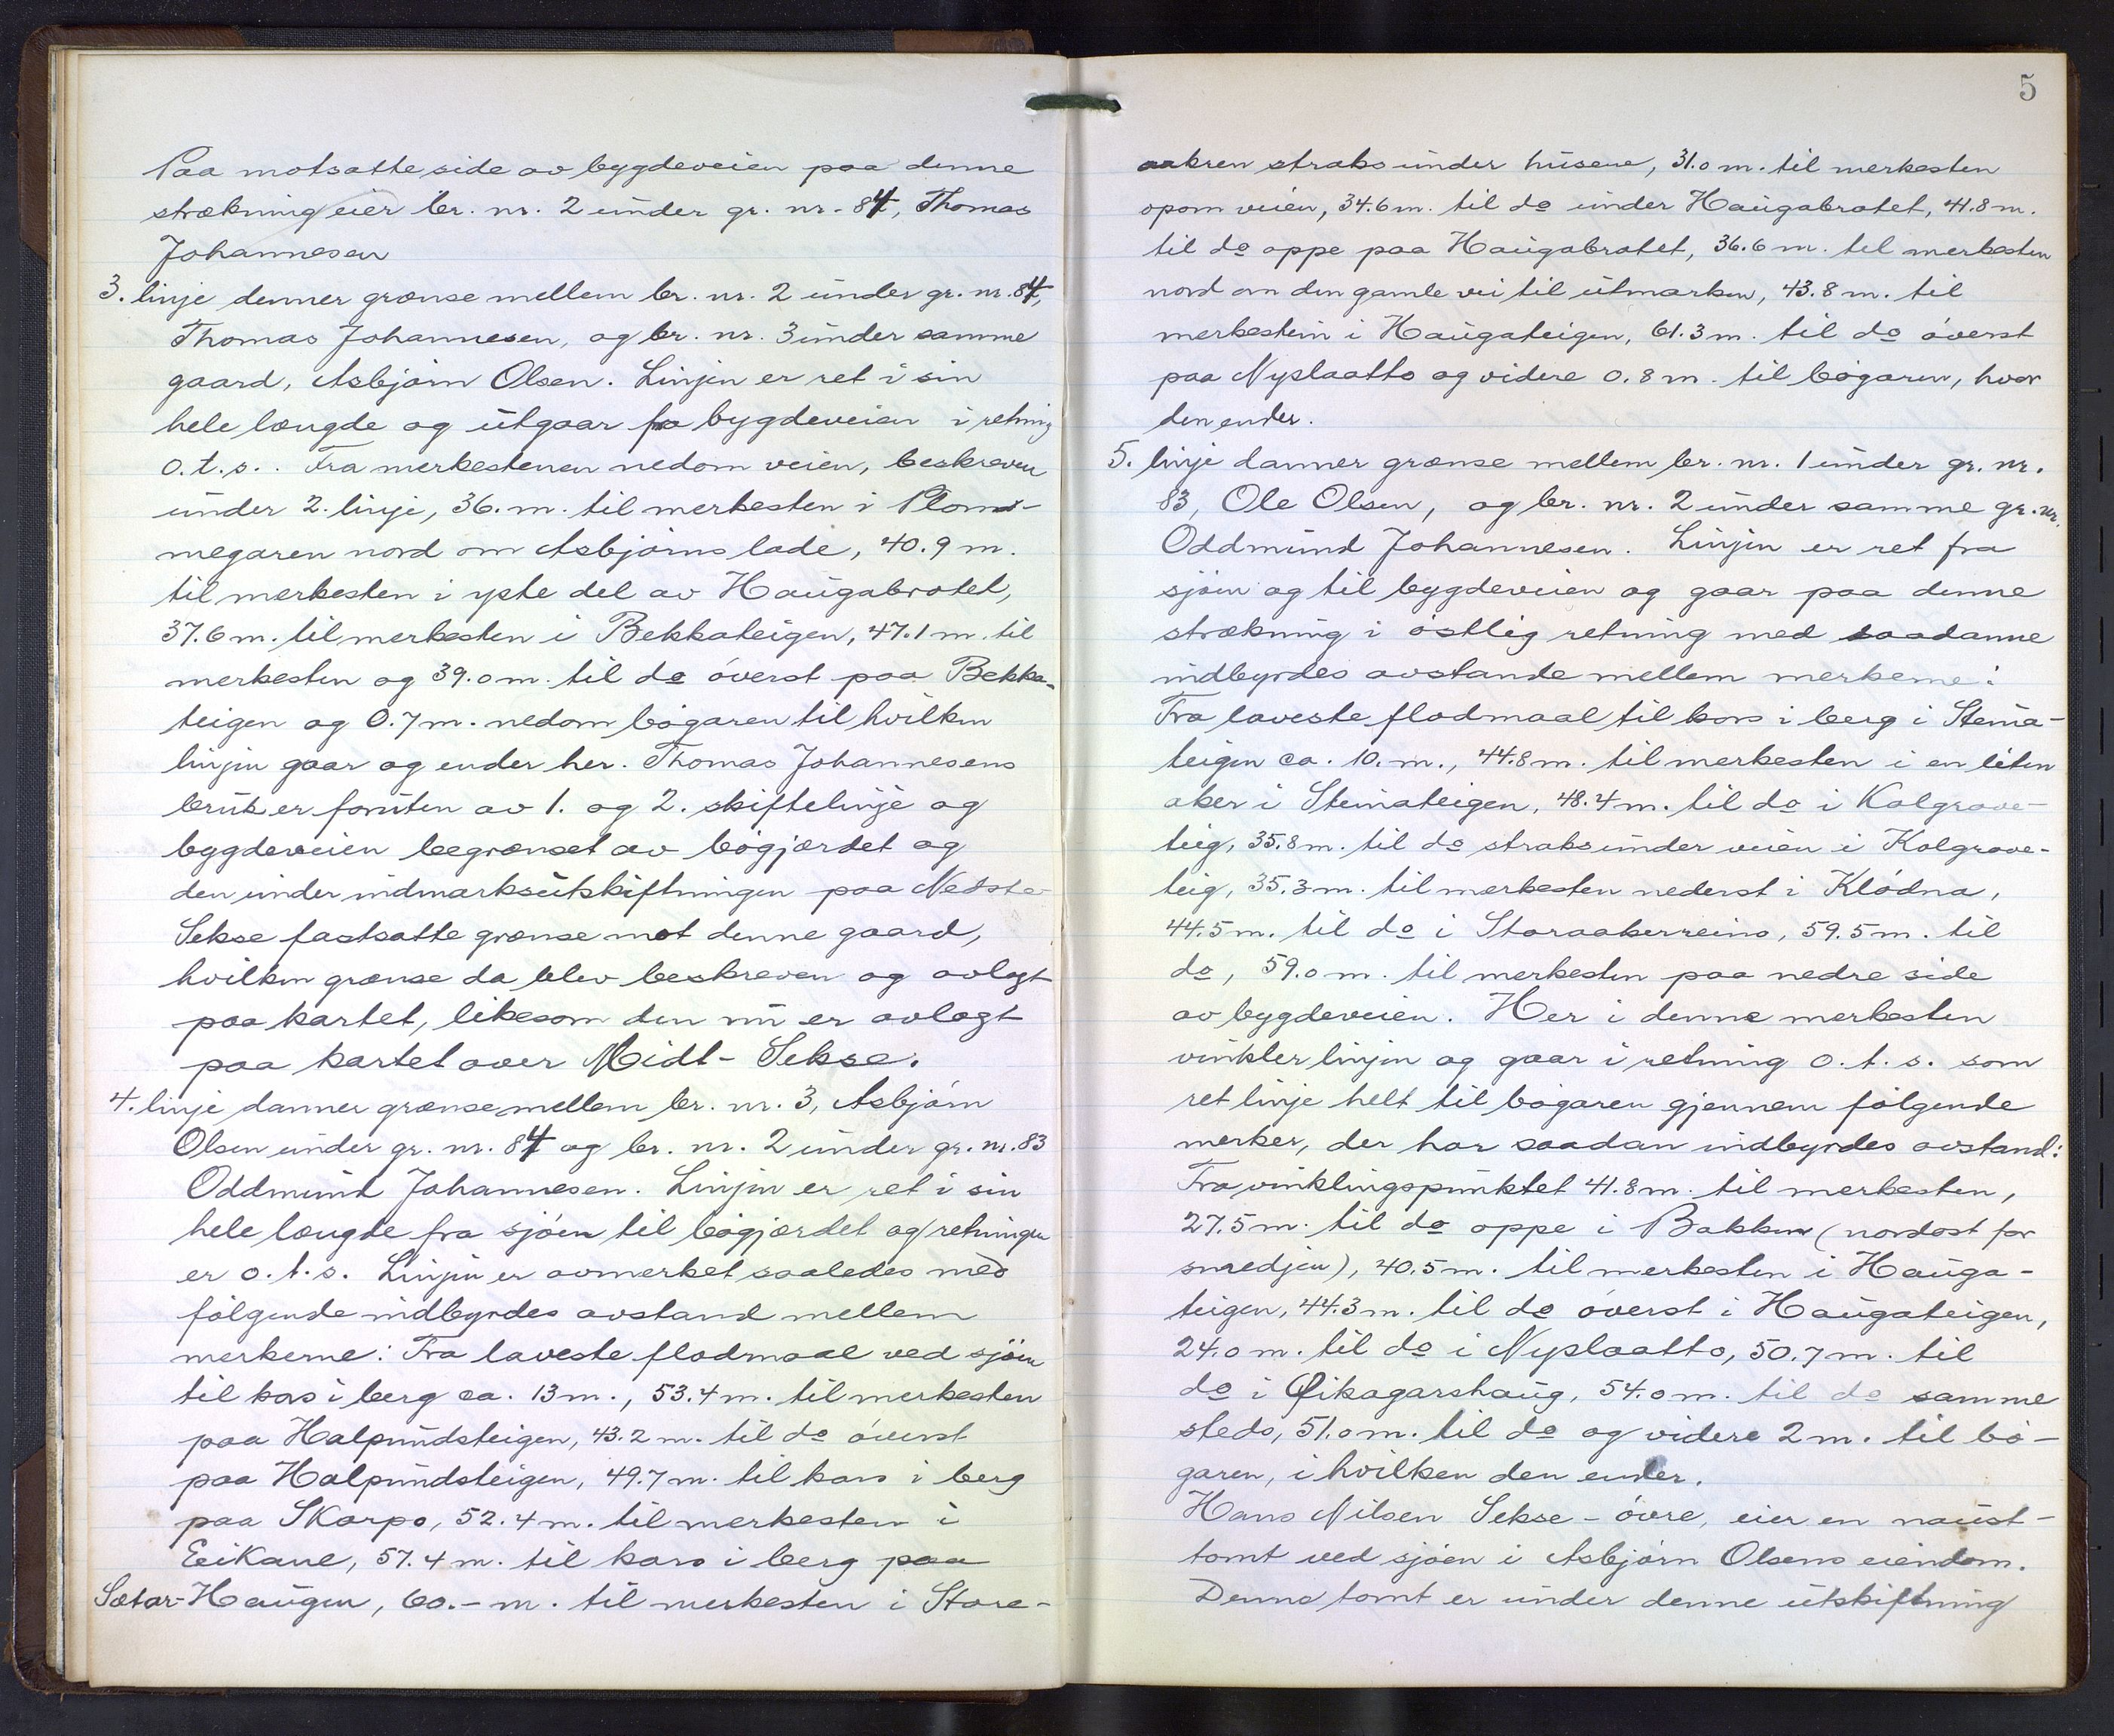 Paa motsatte side av bygdeveien paa denne
strækning eier br. nr. 2 under gr. nr. 84, Thomas
Johannesen
3. linje denner grænse mellem br. nr. 2 under gr. nr. 84,
Thomas Johannesen, og br. nr. 3 under samme
gaard, Asbjørn Olsen. Linjen er ret i sin
hele længde og utgaar fra bygdeveien i retning
o.t.s.. Fra merkestenen nedom veien, beskreven
under 2. linje, 36. m. til merkesten i Plom-
megaren nord om Asbjørns lade, 40.9 m.
til merkesten i yste del av Haugabrotet,
37.6 m. til merkesten i Bekkateigen, 47.1 m. til
merkesten og 39.0 m. til do øverst paa Bekka-
teigen og 0.7 m. nedom bøgaren til hvilken
linjen gaar og ender her. Thomas Johannesens
bruk er foruten av 1. og 2. skiftelinje og
bygdeveien begrænset av bøgjærdet og
den under indmarksutskiftningen paa Nedste
Sekse fastsatte grænse mot denne gaard,
hvilken grænse da blev beskreven og avlagt
paa kartet, likesom den nu er avlagt
paa kartet over Midt-Sekse.
4. linje danner grænse mellem br. nr. 3, Asbjørn
Olsen under gr. nr. 84 og br. nr. 2 under gr. nr. 83
Oddmund Johannesen. Linjen er ret i sin
hele længde fra sjøen til bøgjærdet og retningen
er o.t.s. Linjen er avmerket saaledes med
følgende indbyrdes avstand mellem
merkerne: Fra laveste flodmaal ved sjøen
til kors i berg ca. 13 m., 53.4 m. til merkesten
paa Halpundsteigen, 43.2 m. til do øverst
paa Halpundsteigen, 49.7 m. til kors i berg
paa Skarpo, 52.4 m. til merkesten i
Eikane, 57.4 m. til kors i berg paa
Sætar-Haugen, 60.- m. til merkesten i Store-
5
aakren straks under husene, 31.0 m. til merkesten
opom veien, 34.6 m. til do under Haugabrotet, 41.8 m.
til do oppe paa Haugabrotet, 36.6 m. til merkesten
nord om den gamle vei til utmarken, 43.8 m. til
merkestein i Haugateigen, 61.3 m. til do øverst
paa Nyslaatto og videre 0.8 m. til bøgaren, hvor
den ender.
5. linje danner grænse mellem br. nr. 1 under gr. nr.
83, Ole Olsen, og br. nr. 2 under samme gr. nr.
Oddmund Johannesen. Linjen er ret fra
sjøen og til bygdeveien og gaar paa denne
strækning i østlig retning med saadanne
indbyrdes avstande mellem merkerne:
Fra laveste flodmaal til kors i berg i Steina-
teigen ca. 10. m., 44.8 m. til merkesten i en liten
aker i Steinateigen, 48.4 m. til do i Kolgrave-
teig, 35.8 m. til do straks under veien i Kolgrave-
teig, 35.3 m. til merkesten nederst i Klødna,
44.5 m. til do i Storaakerreino, 59.5 m. til
do, 59.0 m. til merkesten paa nedre side
av bygdeveien. Her i denne merkesten
vinkler linjen og gaar i retning o.t.s. som
ret linje helt til bøgaren gjennem følgende
merker, der har saadan indbyrdes avstand:
Fra vinklingspunktet 41.8 m. til merkesten,
27.5 m. til do oppe i Bakken (nordøst for
smedjen), 40.5 m. til merkesten i Hauga-
teigen, 44.3 m. til do øverst i Haugateigen,
24.0 m. til do i Nyslaatto, 50.7 m. til
do i Øikagarshaug, 54.0 m. til do samme
steds, 51.0 m. til do og videre 2 m. til bø-
garen, i hvilken den ender.
Hans Nilsen Sekse-øvre, eier en naust-
tomt ved sjøen i Asbjørn Olsens eiendom.
Denne tomt er under denne utskiftning